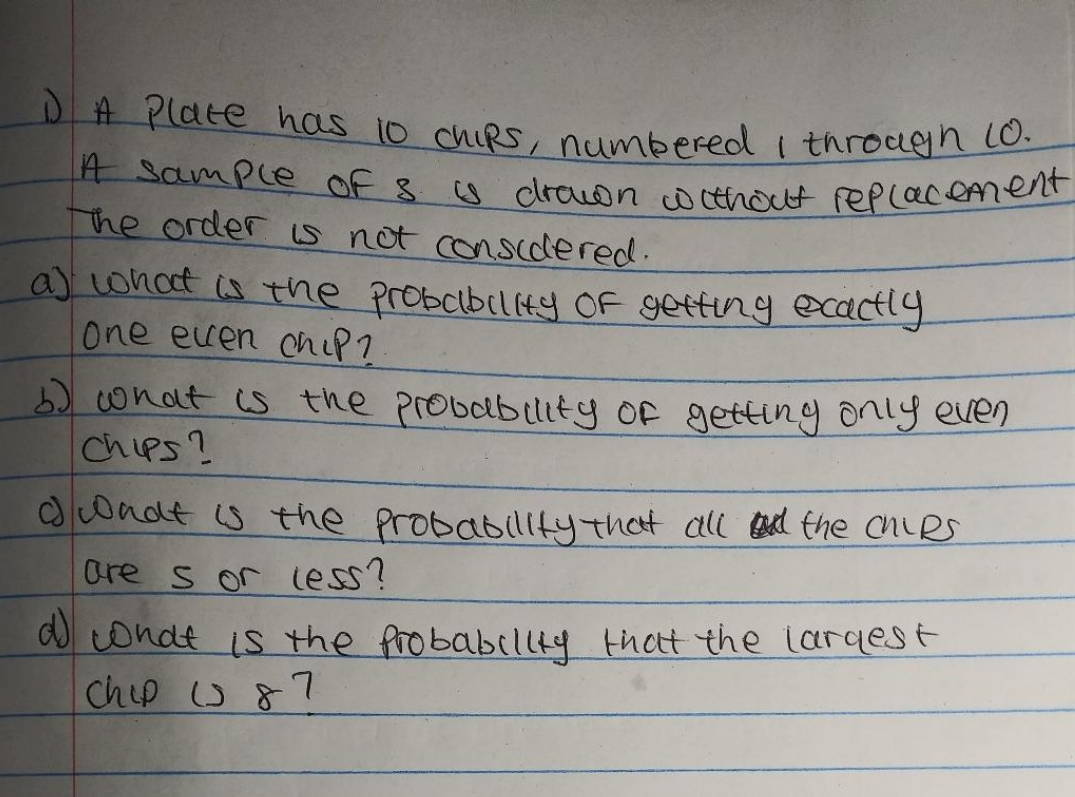 1) A Plate has 10 chips, numbered 1 through 10.
A sample of 3 is drawn without replacement
The order is not considered.
a) what is the probability of getting exactly
one even chip?
b) what is the probability of getting only even
chips?
c) what is the probability that all the chips
are 5 or less?
d) what is the probability that the largest
chip is 8?